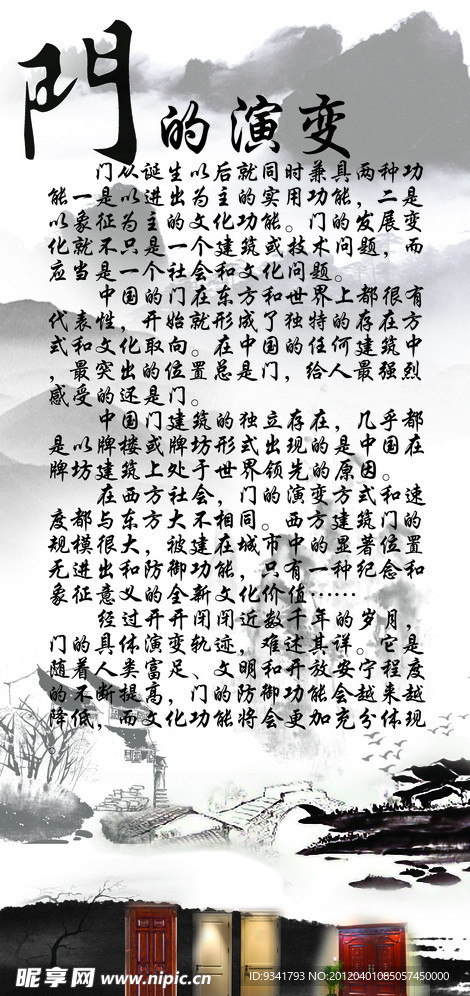 門的演变
门从诞生以后就同时兼具两种功
能一是以进出为主的实用功能，二是
以象征为主的文化功能。门的发展变
化就不只是一个建筑或技术问题，而
应当是一个社会和文化问题。
中国的门在东方和世界上都很有
代表性，开始就形成了独特的存在方
式和文化取向。在中国的任何建筑中
，最突出的位置总是门，给人最强烈
感受的还是门。
中国门建筑的独立存在，几乎都
是以牌楼或牌坊形式出现的是中国在
牌坊建筑上处于世界领先的原因。
在西方社会，门的演变方式和速
度都与东方大不相同。西方建筑门的
规模很大，被建在城市中的显著位置
无进出和防御功能，只有一种纪念和
象征意义的全新文化价值……
经过开开闭闭近数千年的岁月，
门的具体演变轨迹，难述其详。它是
随着人类富足、文明和开放安宁程度
的不断提高，门的防御功能会越来越
降低，而文化功能将会更加充分体现
昵享网 www.nipic.cn
ID:9341793 NO:20120401085057450000